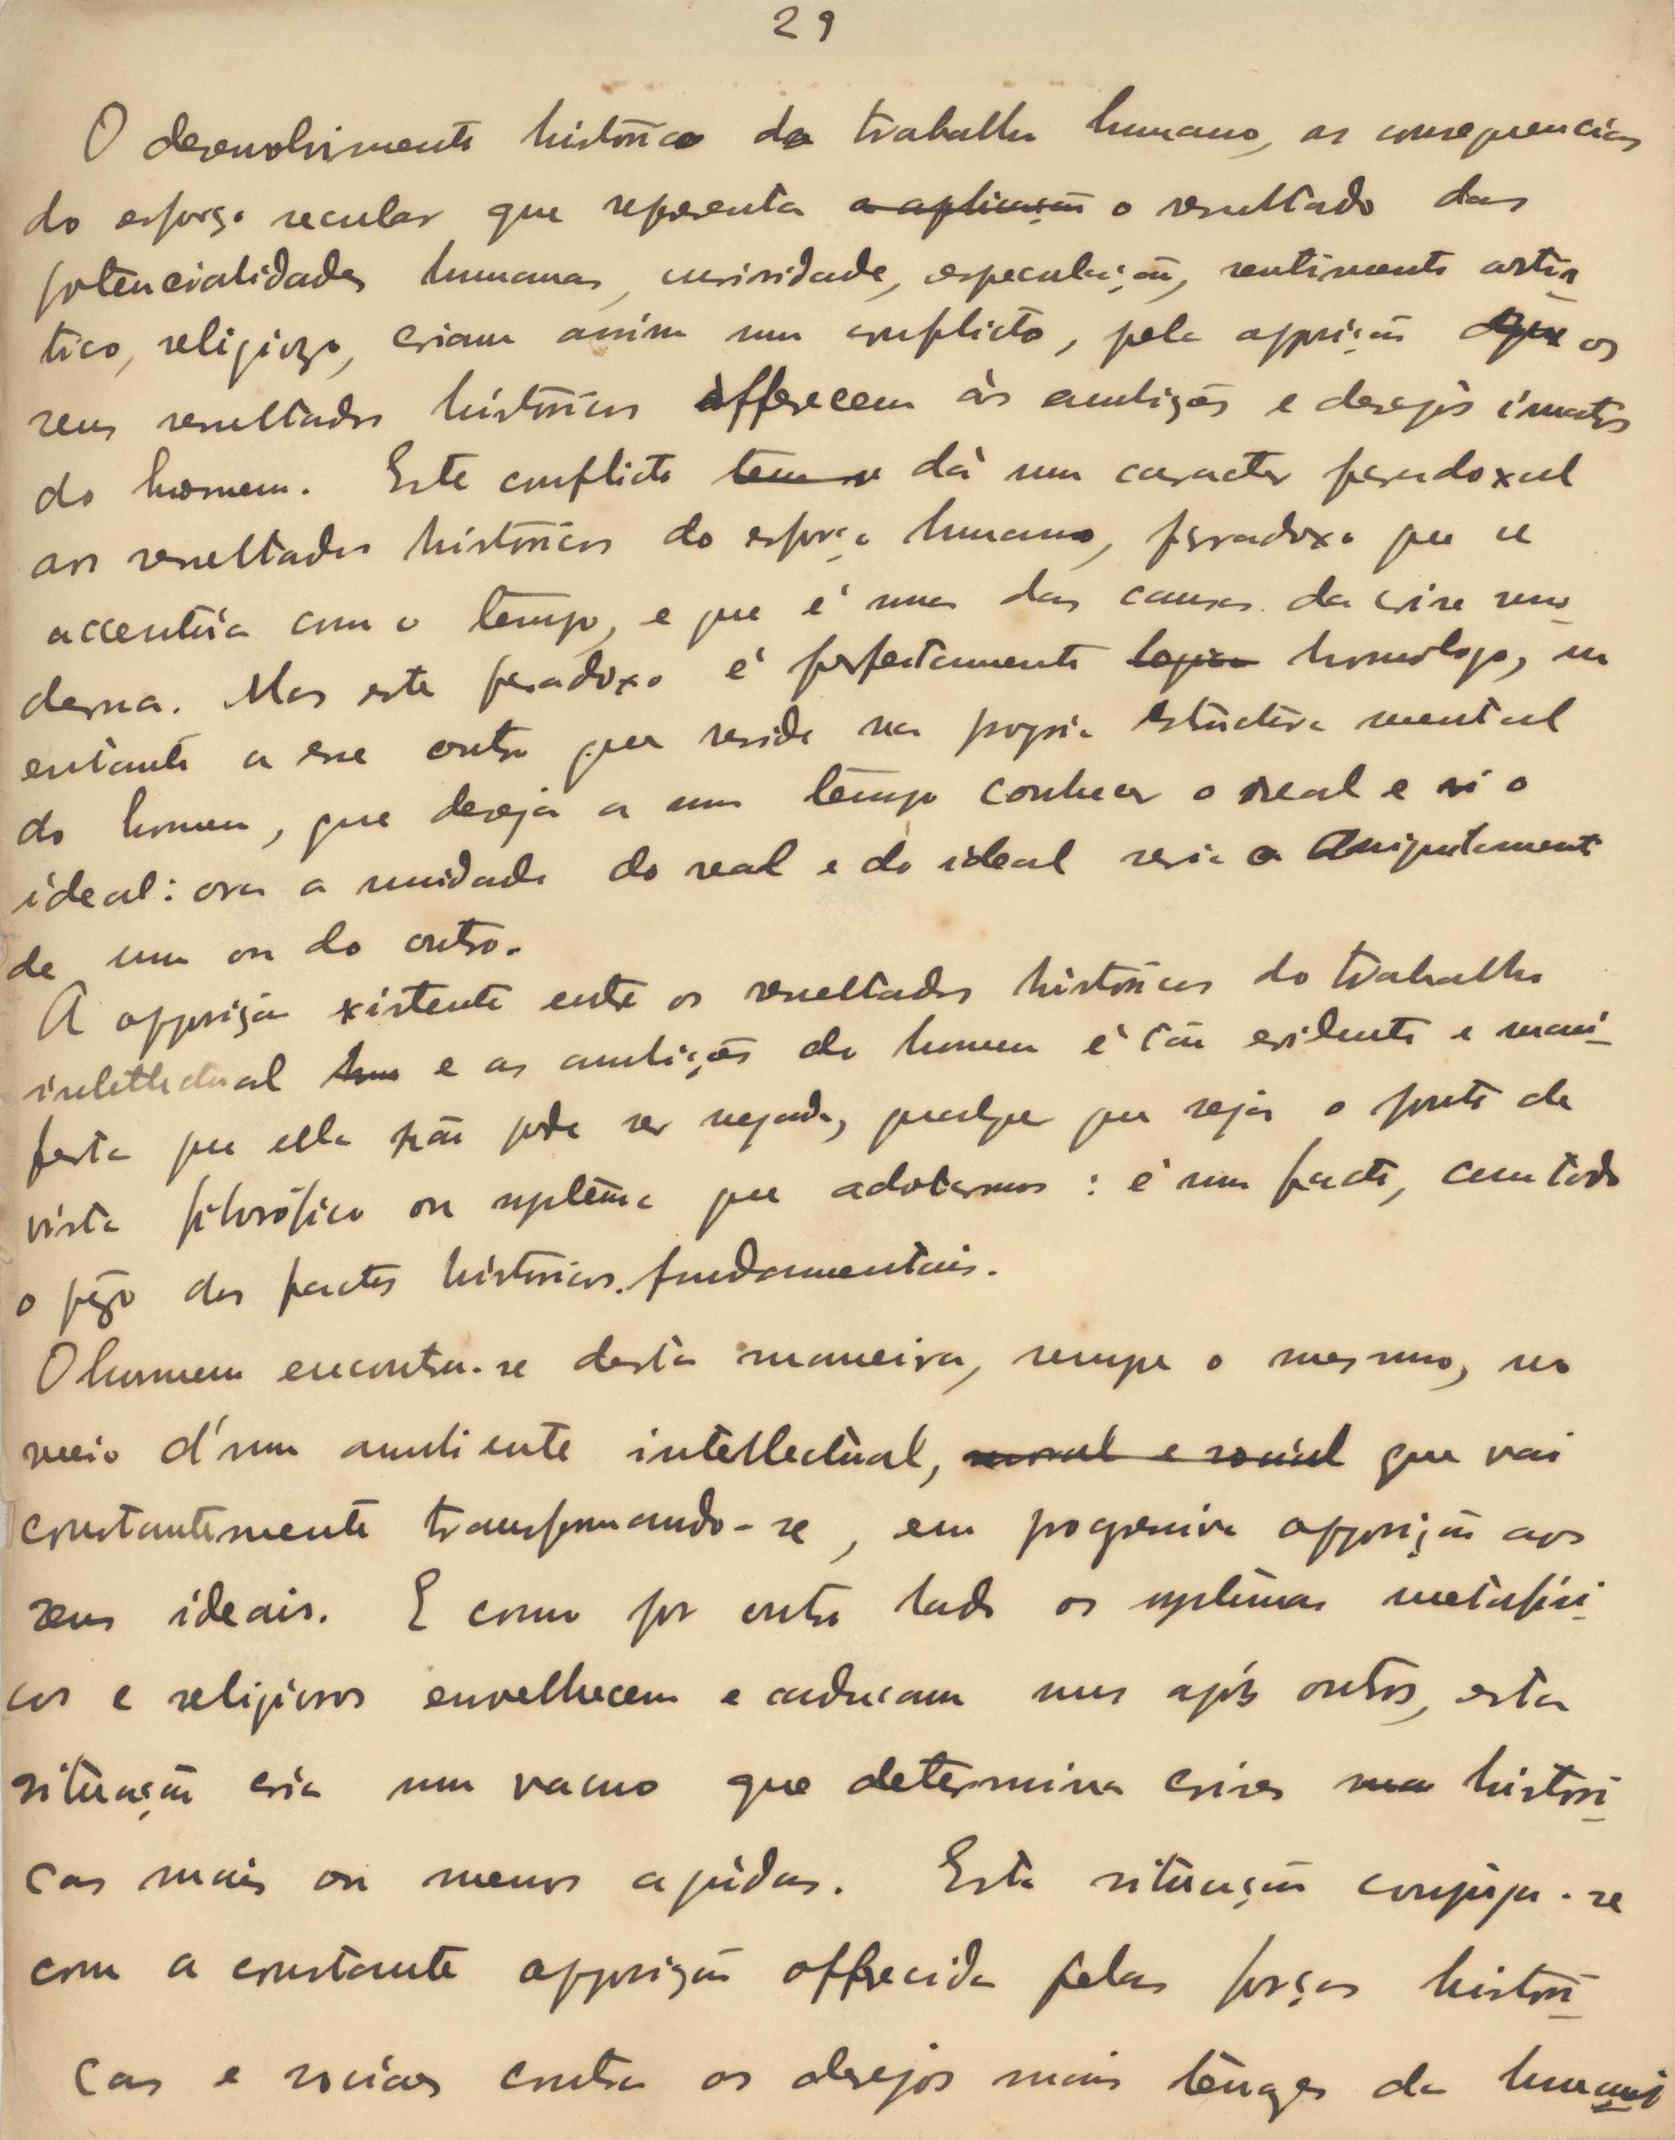 29
O desenvolvimento histórico do trabalho humano, as consequencias
do esforço secular que representa a aplicação o resultado das
potencialidades humanas, curiosidade, especulação, sentimento artis-
tico, religiozo, criam assim um conflicto, pela opposição que os
seus resultados históricos offerecem às ambições e desejos inatos
do homem. Este conflicto tem-se dá um caracter paradoxal
aos resultados históricos do esforço humano, paradoxo que se
accentúa com o tempo, e que é uma das causas da crise mo-
derna. Mas este paradoxo é perfeitamente logico homologo, no
entanto a esse outro que reside na propria estructura mental
do homem, que deseja a um tempo conhecer o real e só o
ideal: ora a unidade do real e do ideal seria o aniquilamento
de um ou do outro.
A opposição existente entre os resultados históricos do trabalho
intellectual hum e as ambições do homem é tão evidente e mani-
festa que ella não pode ser negada, qualquer que seja o ponto de
vista filosófico ou systema que adotarmos: é um facto, com todo
o pezo dos factos históricos fundamentais.
O homem encontra-se desta maneira, sempre o mesmo, no
meio d'um ambiente intellectual, moral e social que vai
constantemente transformando-se, em progressiva opposição aos
seus ideais. E como por outro lado os systemas metafisi-
cos e religiosos envelhecem e caducam uns após outros, esta
situação cria um vacuo que determina crises na histori-
cas mais ou menos agudas. Esta situação conjuga-se
com a constante opposição offrecida pelas forças histori-
cas e sociaes contra os desejos mais tenazes da humani